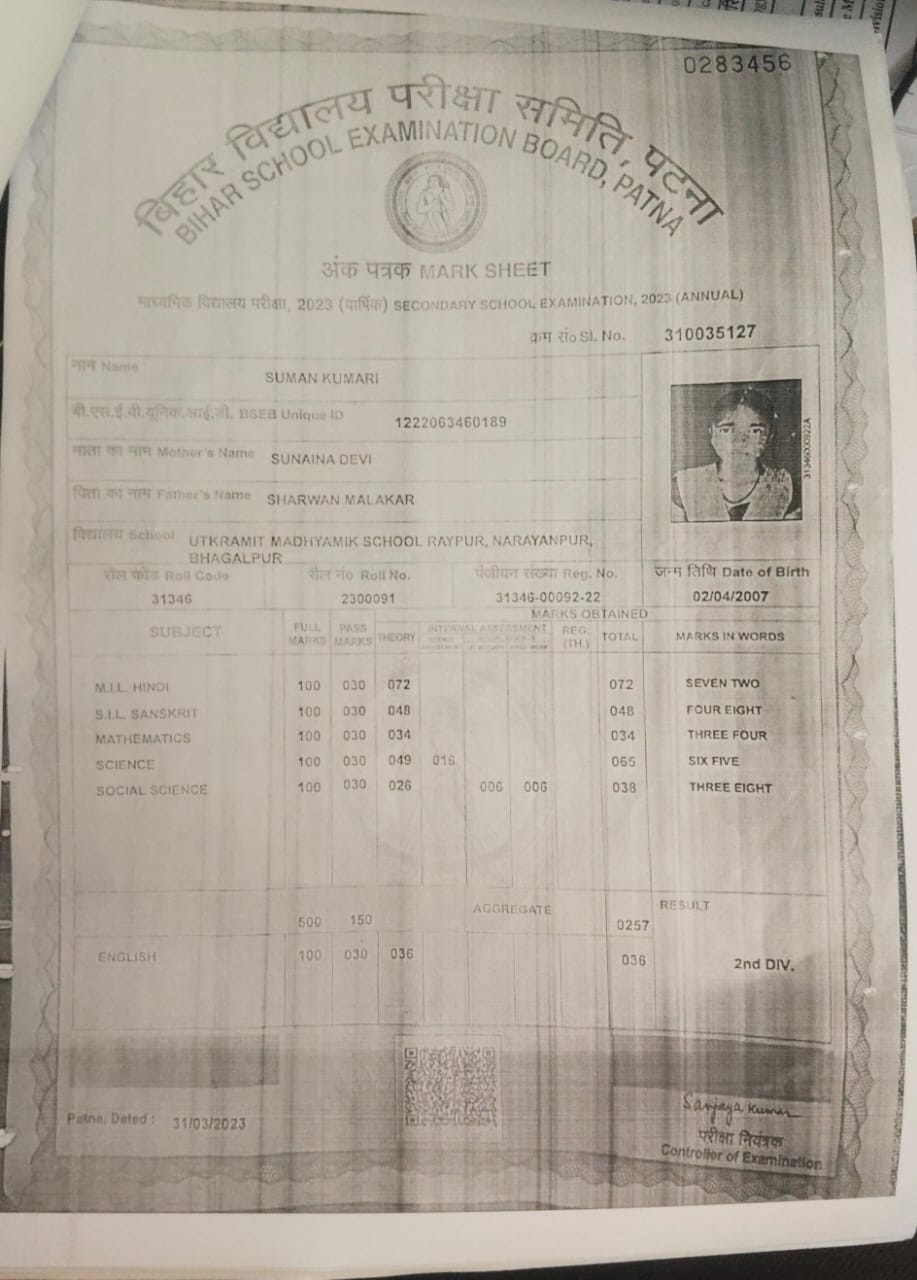 0283456
बिहार विद्यालय परीक्षा समिति, पटना
BIHAR SCHOOL EXAMINATION BOARD, PATNA
अंक पत्रक MARK SHEET
माध्यमिक विद्यालय परीक्षा, 2023 (वार्षिक) SECONDARY SCHOOL EXAMINATION, 2023 (ANNUAL)
क्रम संo Sl. No. 310035127
नाम Name SUMAN KUMARI
बी.एस.ई.बी.यूनिक.आई.डी. BSEB Unique ID 1222063460189
माता का नाम Mother's Name SUNAINA DEVI
पिता का नाम Father's Name SHARWAN MALAKAR
विद्यालय School UTKRAMIT MADHYAMIK SCHOOL RAYPUR, NARAYANPUR,
BHAGALPUR
313460009 22A
रौल कोड Roll Code रौल नंo Roll No. पंजीयन संख्या Reg. No. जन्म तिथि Date of Birth
31346 2300091 31346-00092-22 02/04/2007
MARKS OBTAINED
SUBJECT FULL MARKS PASS MARKS THEORY INTERNAL ASSESSMENT REG. (TH.) TOTAL MARKS IN WORDS
M.I.L. HINDI 100 030 072 072 SEVEN TWO
S.I.L. SANSKRIT 100 030 048 048 FOUR EIGHT
MATHEMATICS 100 030 034 034 THREE FOUR
SCIENCE 100 030 049 016 065 SIX FIVE
SOCIAL SCIENCE 100 030 026 006 006 038 THREE EIGHT
AGGREGATE RESULT
500 150 0257
ENGLISH 100 030 036 036 2nd DIV.
Patna, Dated : 31/03/2023
Sanjaya Kumar
परीक्षा नियंत्रक
Controller of Examination